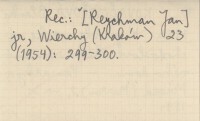 Rec.: [Reychman Jan]
jr, Wierchy (Kraków) 23
(1954): 299-300.